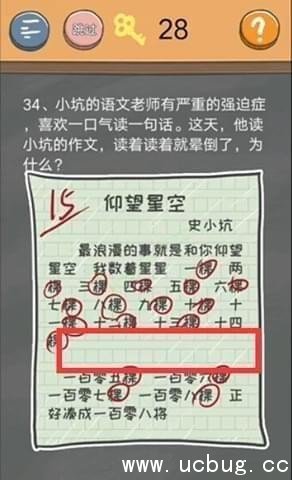 跳过
28
34、小坑的语文老师有严重的强迫症
，喜欢一口气读一句话。这天，他读
小坑的作文，读着读着就晕倒了，为
什么？
15
仰望星空
史小坑
最浪漫的事就是和你仰望
星空 我数着星星 一棵 两
棵 三棵 四棵 五棵 六棵
七棵 八棵 九棵 十棵 十
一棵 十二棵 十三棵 十四
棵
一百零五棵 一百零六棵
一百零七棵 一百零八棵 正
好凑成一百零八将
www.ucbug.cc